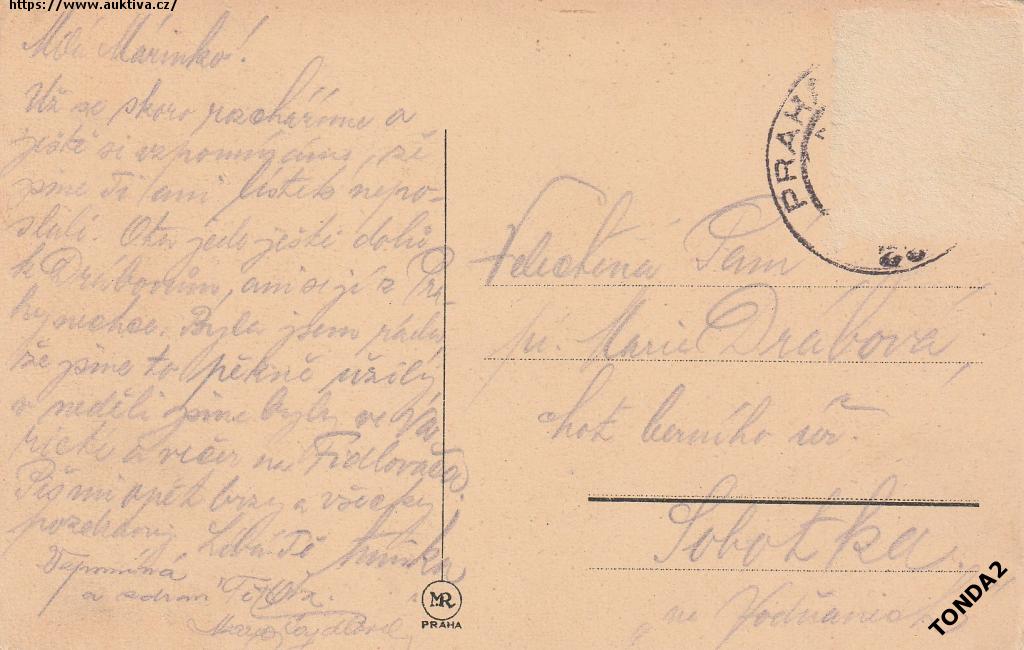 https://www.auktiva.cz/
Milá Márinko!
Už se skoro rozcházíme a
ještě si vzpomínáme, že
jsme Ti ani lístek nepo-
slali. Ota jede ještě dolů
k Drábovům, ani se jí z Pra-
hy nechce. Byla jsem ráda
že jsme to pěkně užily
v neděli jsme byly ve
a večer na Fidlovačce.
Piš mi opět brzy a všecky
pozdravuj. Líbá Tě
Vzpomíná
a zdraví
PRAHA
Velectěná Paní
pí. Marie Drábová,
choť berního úř.
Sobotka
MR
PRAHA
TONDA2